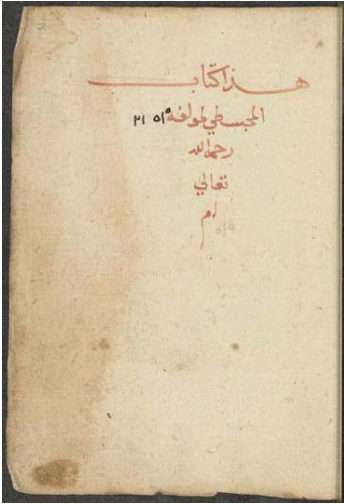 هذا كتاب
المجسطي لمولفه
رحمه الله
تعالي